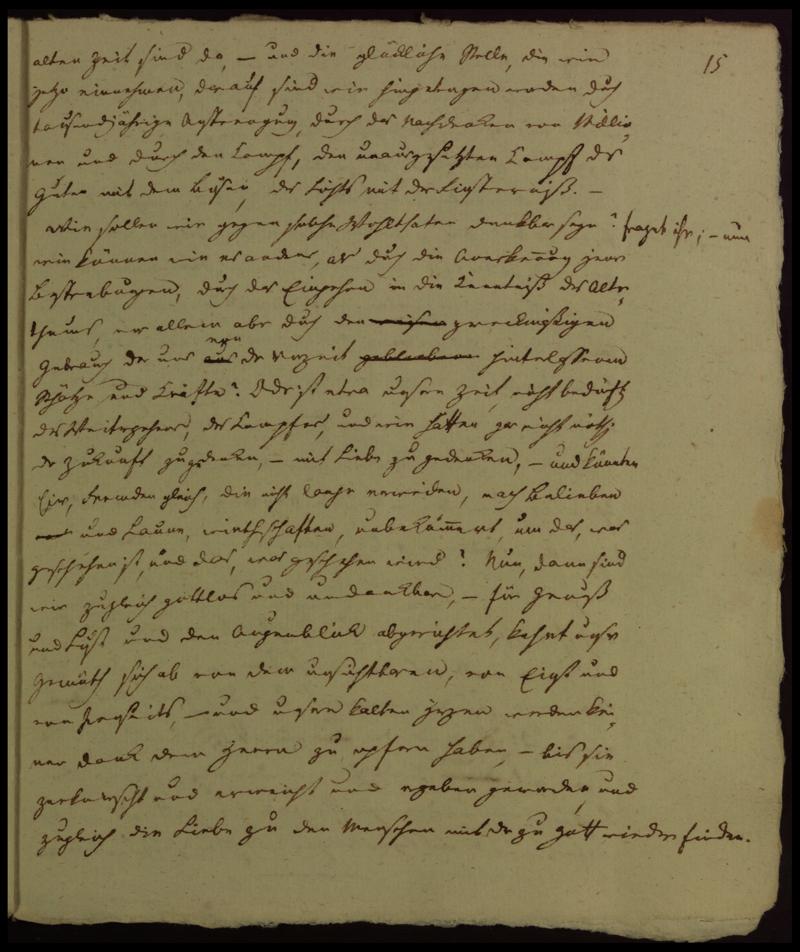 15
alten Zeit sind da, – und die glückliche Stelle, die wir
jetzo einnehmen, darauf sind wir hingetragen worden duch
tausendjährige Anstrengung, durch das Nachdenken von Millio-
nen und durch den Kampf, den unausgesetzten Kampf des
Guten mit dem Bösen, des Lichts mit der Finsterniß. –
Wie sollen wir gegen solche Wohlthaten dankbar seyn? fragt ihr; – nun
wie können wir es anders, als duch die Anerkennung jener
Bestrebungen, duch das Eingehen in die Kenntniß des Alter-
thums, vor allem aber duch den weisen zweckmäßigen
Gebrauch der uns aus von der Vorzeit geblieben hinterlassenen
Schätze und Kräfte? Oder ist etwa unsere Zeit nicht bedürftig
des Weitergehens, des Kampfes, und wir hätten gar nicht nöthig
der Zukunft zu gedenken, – mit Liebe zu gedenken, – und könnten
hier, Fremden gleich, die nicht lange verweilen, nach Belieben
und Laune, wirthschaften, unbekümmert, um das, was
geschehen ist, und das, was geschehen wird? Nun, dann sind
wir zugleich gottlos und undankbar, – für Genuß
und Lust und den Augenblick abgerichtet, kehrt unser
Gemüth sich ab von dem unsichtbaren, von Einst und
von Jenseits, – und unsere kalten Herzen werden kei-
nen Dank dem Herrn zu opfern haben, – bis sie
zerknirscht und erweicht und ergeben geworden, und
zugleich die Liebe zu den Menschen mit der zu Gott wieder finden.